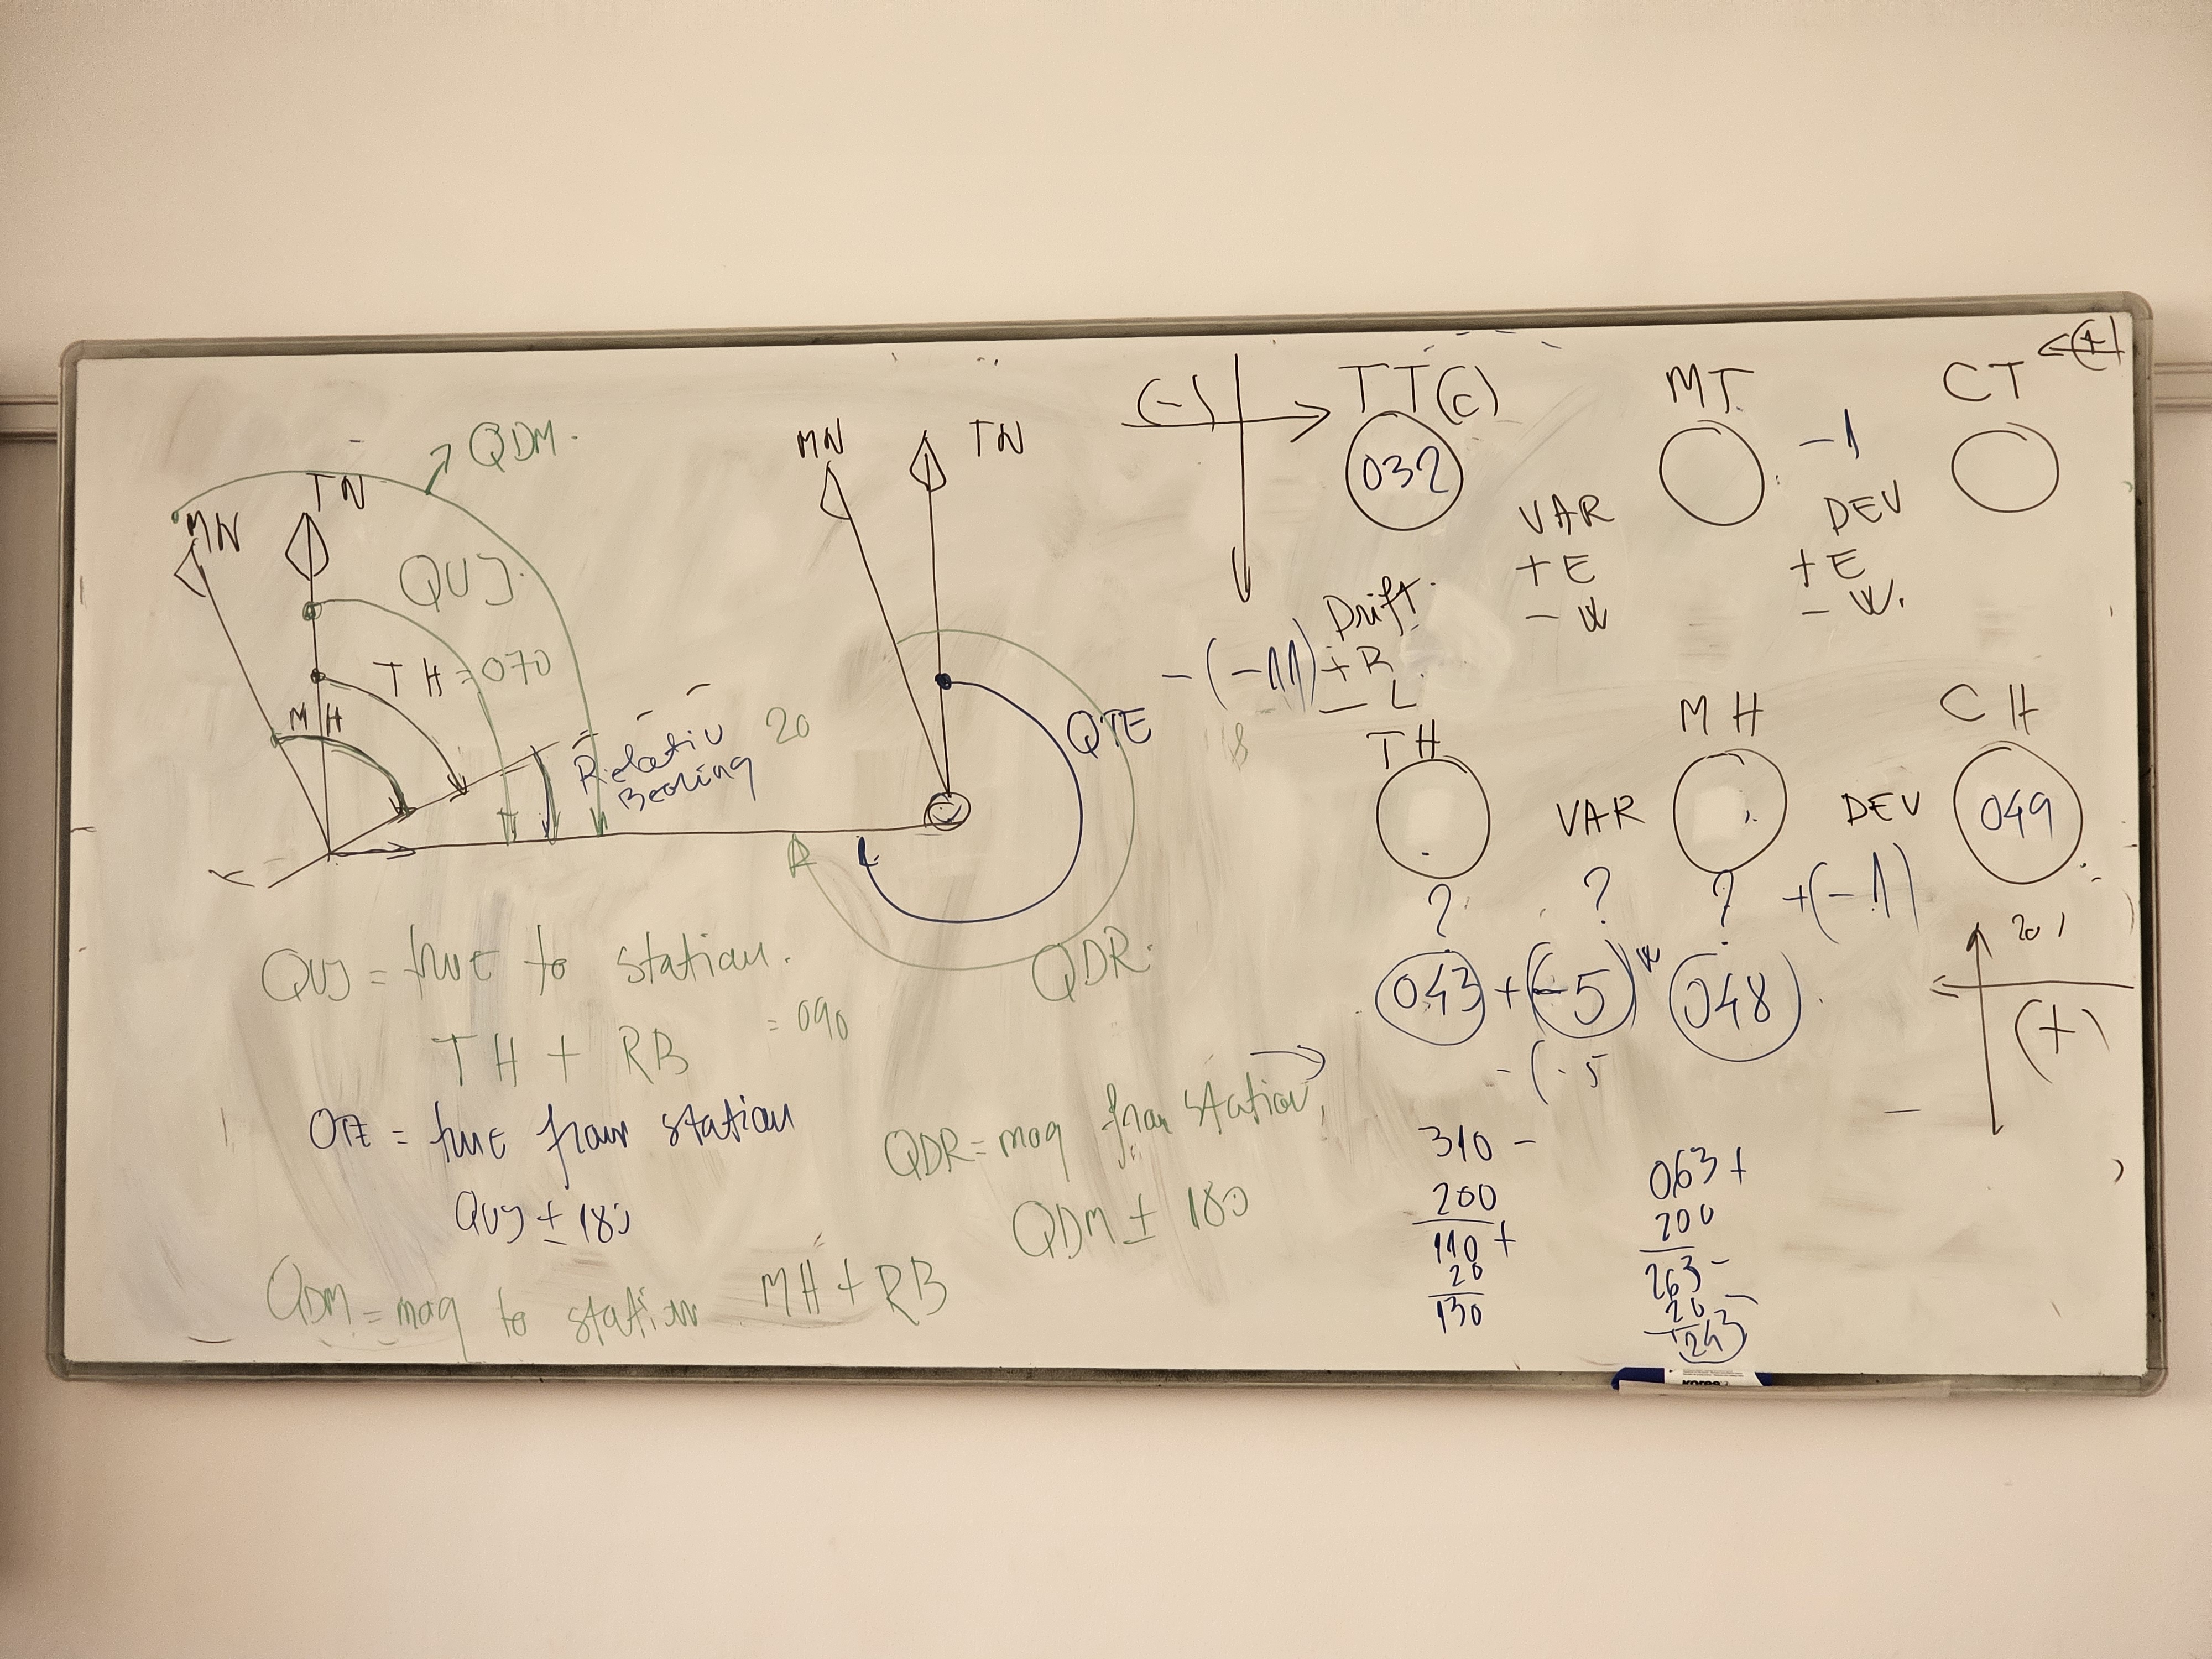 QDM.
TN
MN
QUJ.
TH = 070
MH
Relativ 20
Bearing
MN TN
QTE
QDR.
QUJ = true to station.
TH + RB = 090
QTE = true from station
QUJ ± 180
QDM = mag to station MH + RB
QDR = mag from station,
QDM ± 180
(-) TT(C) MT. CT (+)
032 -1
VAR DEV
+ E + E
- W - W.
Drift.
-(-11) + R
- L
TH MH CH
VAR DEV 049
? ? ? +(-1)
043 + (-5) W 048
-(-5
(+)
310 -
200
110 +
20
130
063 +
200
263 -
20
243